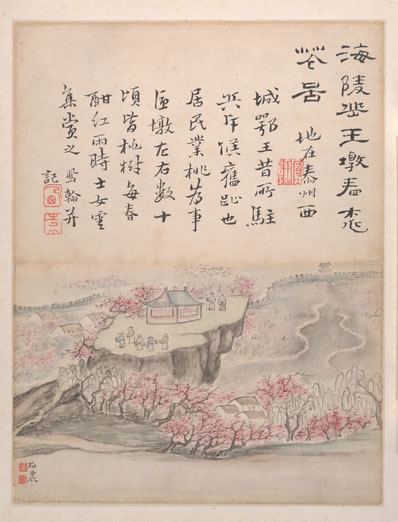 海陵岳王墩看桃
花圖 地在泰州西
城鄂王昔所駐
兵斥堠舊趾也
居民業桃為事
墩左右數十
頃皆桃樹每春
酣紅雨時士女雲
集賞之 翰并
記